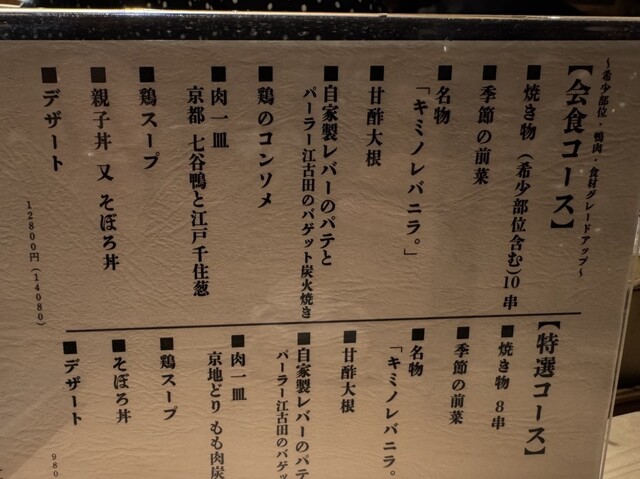 ～希少部位・鴨肉・食材グレードアップ～
【会食コース】
■焼き物（希少部位含む）10串
■季節の前菜
■名物
「キミノレバニラ。」
■甘酢大根
■自家製レバーのパテと
パーラー江古田のバゲット炭火焼き
■鶏のコンソメ
■肉一皿
京都 七谷鴨と江戸千住葱
■鶏スープ
■親子丼 又 そぼろ丼
■デザート
12800円（14080）
【特選コース】
■焼き物 8串
■季節の前菜
■名物
「キミノレバニラ。
■甘酢大根
■自家製レバーのパテ
パーラー江古田のバゲッ
■肉一皿
京地どり もも肉炭
■鶏スープ
■そぼろ丼
■デザート
980